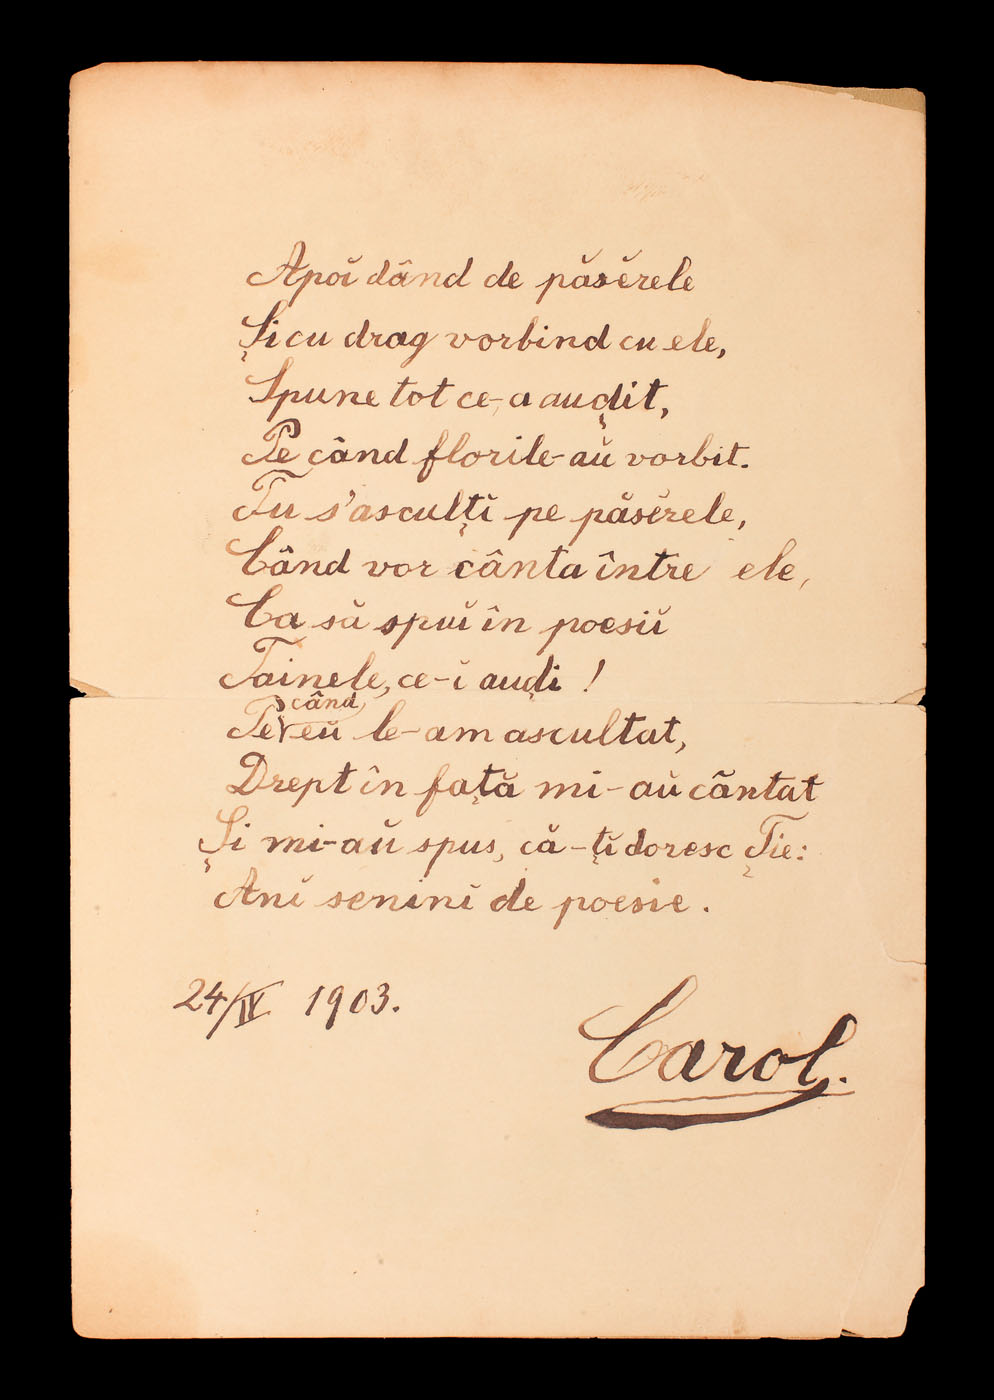 Apoĭ dând de păsĕrele
Și cu drag vorbind cu ele,
Spune tot ce-a auḑit,
Pe când florile-aŭ vorbit.
Tu s'asculțĭ pe păsĕrele,
Când vor cânta între ele,
Ca să spuĭ în poesiĭ
Tainele, ce-ĭ auḑi!
Pe când eŭ le-am ascultat,
Drept în față mi-aŭ cântat
Și mi-aŭ spus, că-țĭ doresc Ție:
Anĭ seninĭ de poesie.
24/IV 1903.
Carol.